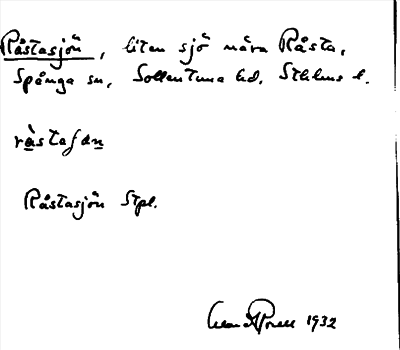 Råstasjön, liten sjö nära Råsta,
Spånga sn, Sollentuna hd, Sthlms l.
Råstasjön Stpl.
1932